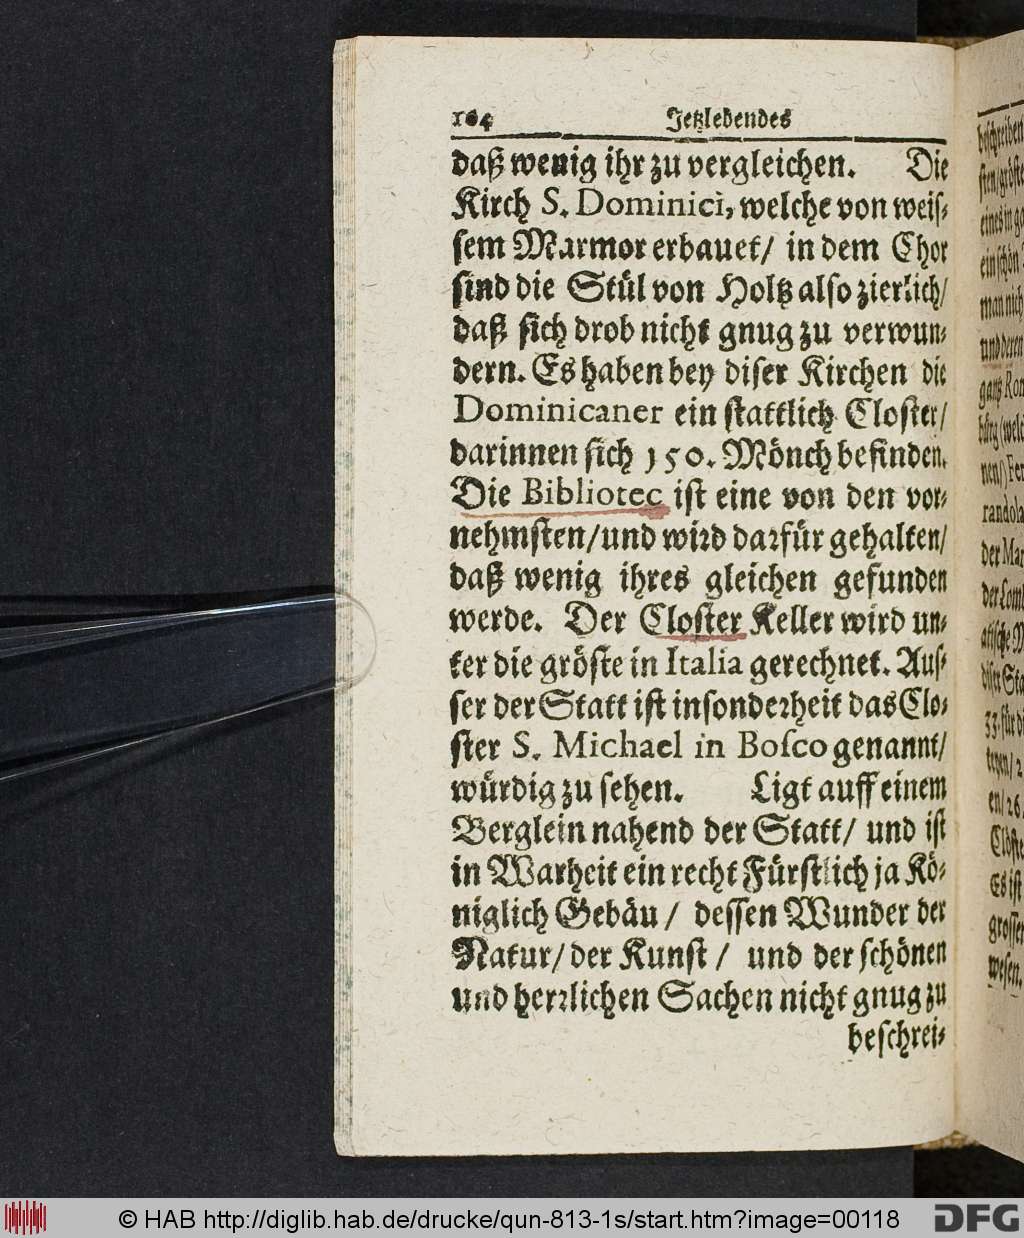 104 Jetzlebendes
daß wenig ihr zu vergleichen. Die
Kirch S. Dominici, welche von weis-
sem Marmor erbauet/ in dem Chor
sind die Stül von Holtz also zierlich/
daß sich drob nicht gnug zu verwun-
dern. Es haben bey diser Kirchen die
Dominicaner ein stattlich Closter/
darinnen sich 150. Mönch befinden.
Die Bibliotec ist eine von den vor-
nehmsten/ und wird darfür gehalten/
daß wenig ihres gleichen gefunden
werde. Der Closter Keller wird un-
ter die gröste in Italia gerechnet. Aus-
ser der Statt ist insonderheit das Clo-
ster S. Michael in Bosco genannt/
würdig zu sehen. Ligt auff einem
Berglein nahend der Statt/ und ist
in Warheit ein recht Fürstlich ja Kö-
niglich Gebäu/ dessen Wunder der
Natur/ der Kunst/ und der schönen
und herrlichen Sachen nicht gnug zu
beschrei-
beschreiben
eines in
ein schön
man nich
und deren
gantz
(welc
randola
der Mar
der
für
26
Es ist
grosser
wesen.
© HAB http://diglib.hab.de/drucke/qun-813-1s/start.htm?image=00118
DFG